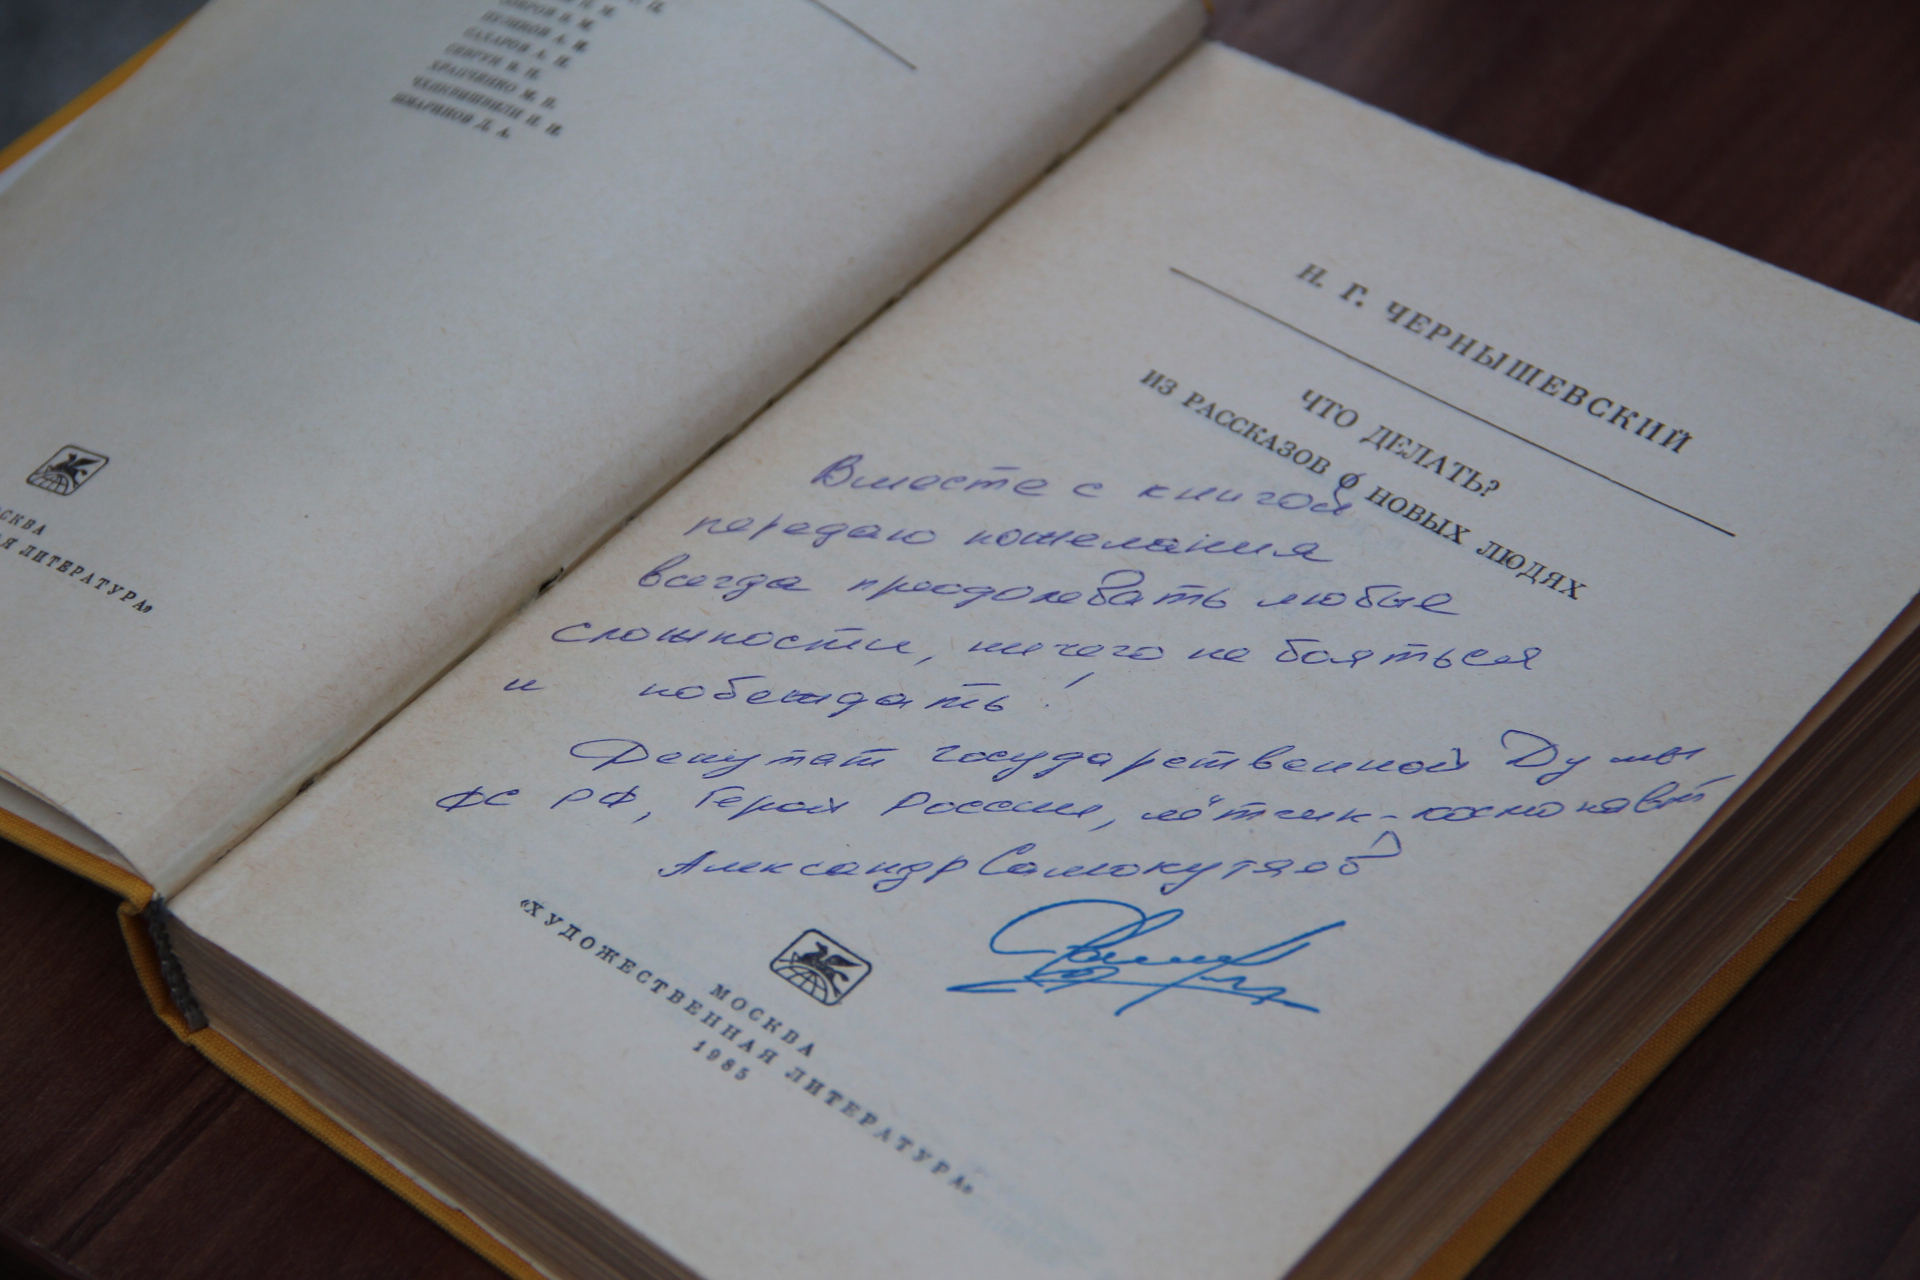 ПУЗИКОВ А. И.
САХАРОВ А. Н.
ХРАПЧЕНКО М. Б.
ШМАРИНОВ Д. А.
АЯ ЛИТЕРАТУРА»
Н. Г. ЧЕРНЫШЕВСКИЙ
ЧТО ДЕЛАТЬ?
ИЗ РАССКАЗОВ О НОВЫХ ЛЮДЯХ
Вместе с книгой
передаю пожелания
всегда преодолевать любые
сложности, ничего не бояться
и побеждать!
Депутат государственной Думы
ФС РФ, Герой России, лётчик-космонавт
Александр Самокутяев
МОСКВА
«ХУДОЖЕСТВЕННАЯ ЛИТЕРАТУРА»
1985